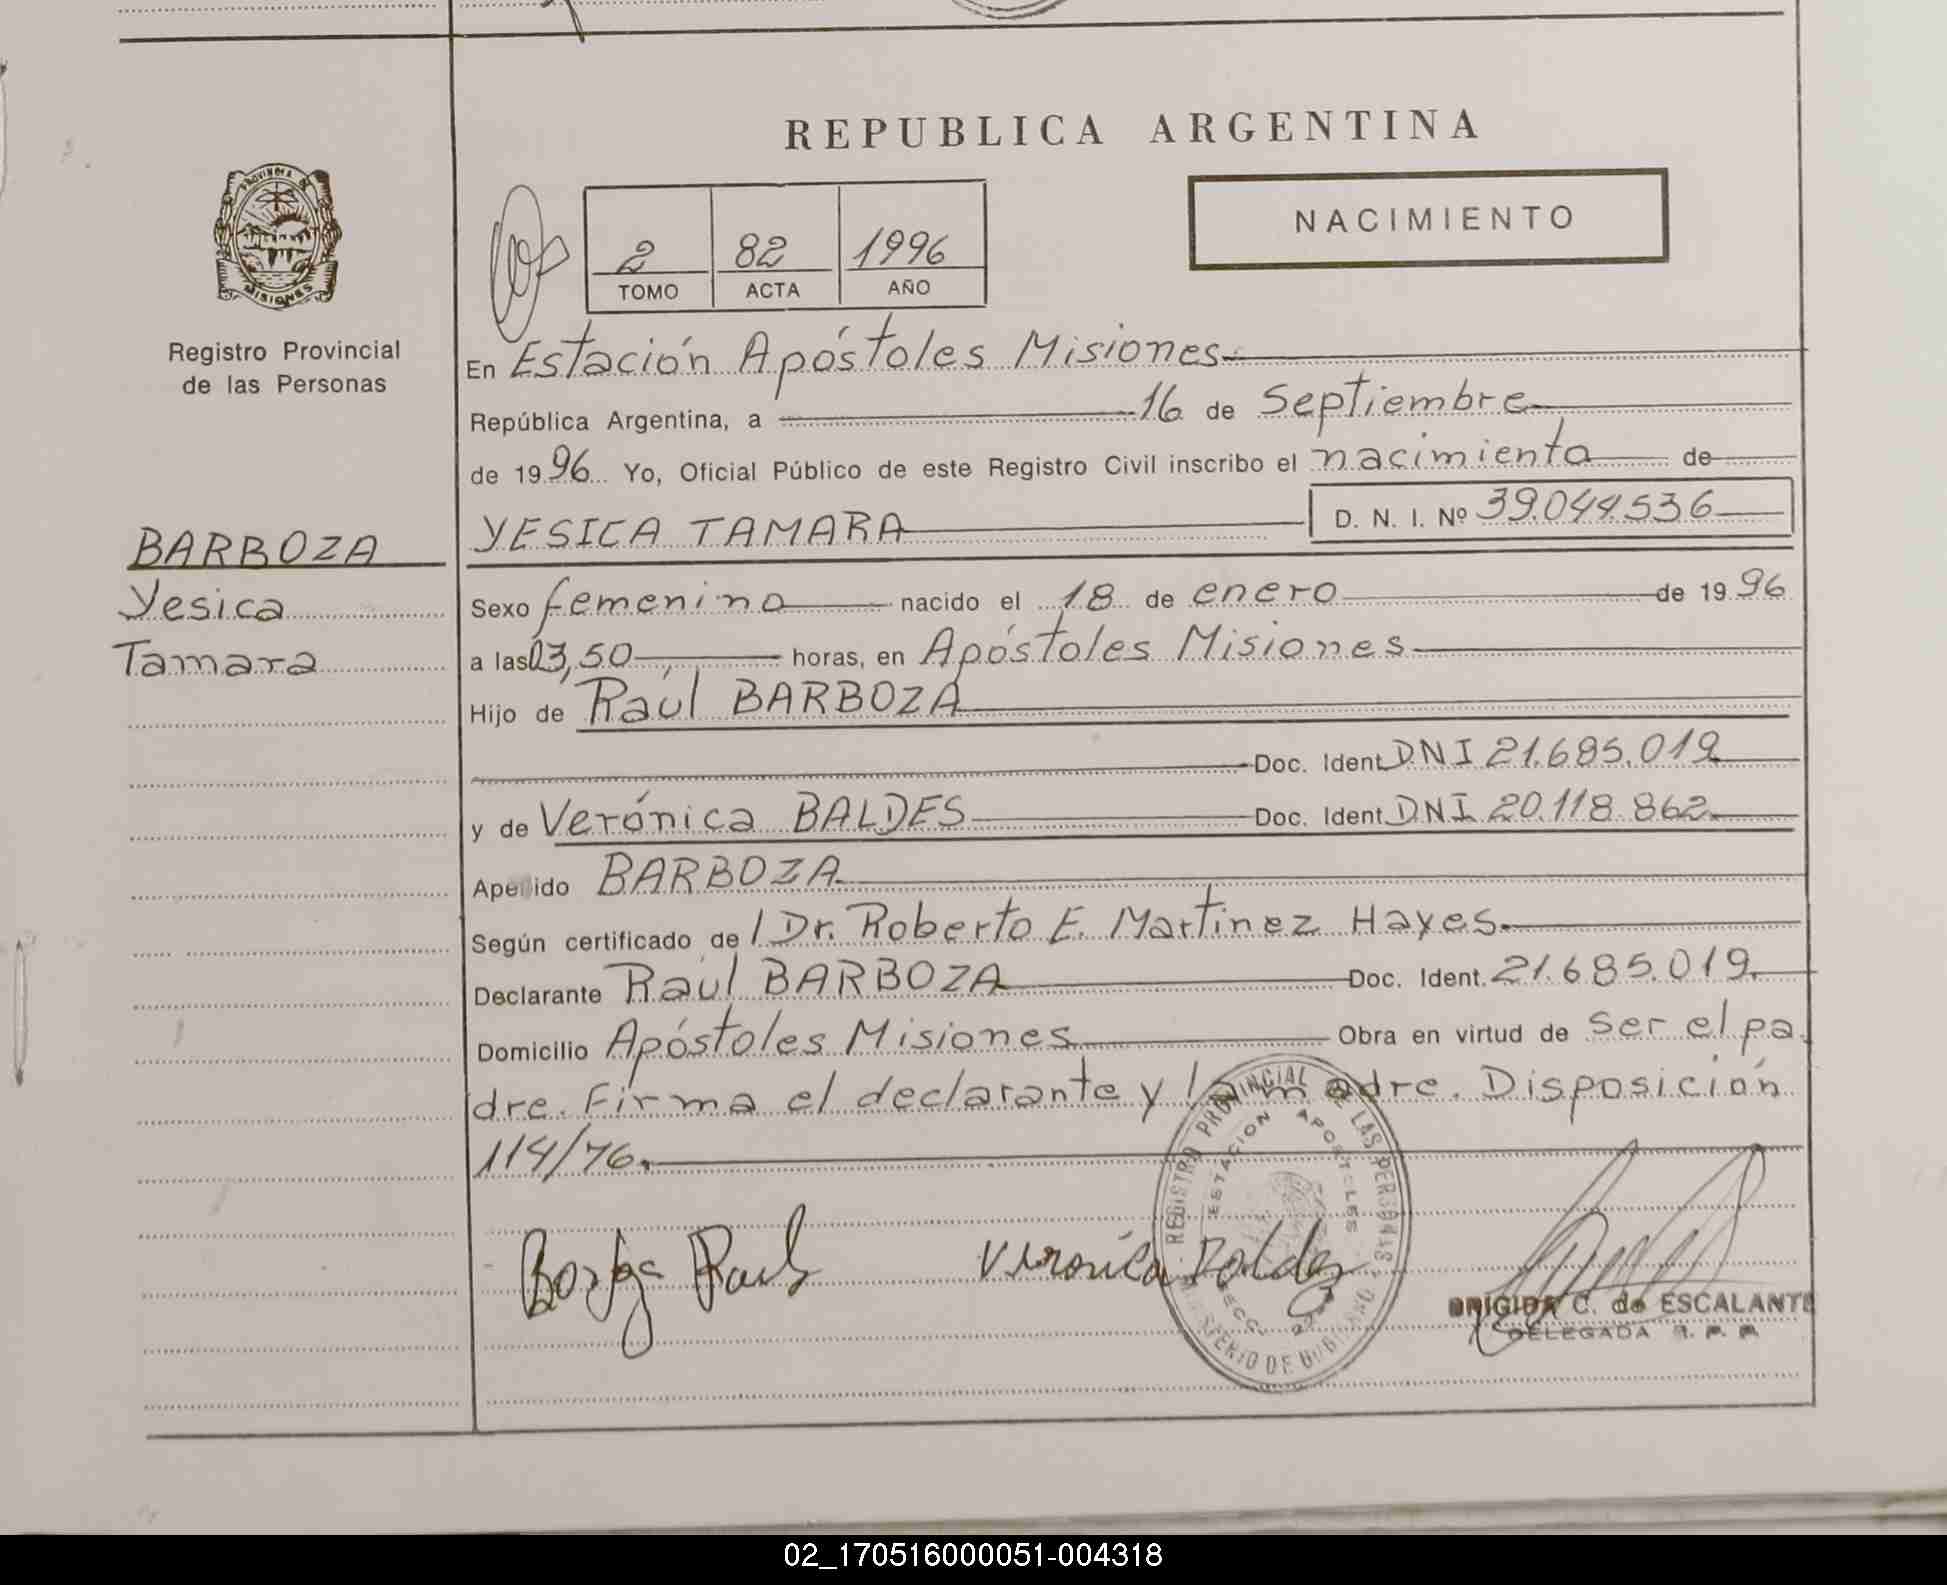 REPUBLICA ARGENTINA
PROVINCIA DE
MISIONES
Registro Provincial
de las Personas
NACIMIENTO
2 82 1996
TOMO ACTA AÑO
En Estación Apóstoles Misiones
República Argentina, a 16 de Septiembre
de 1996 Yo, Oficial Público de este Registro Civil inscribo el nacimiento de
YESICA TAMARA D. N. I. Nº 39.044.536
BARBOZA
Yesica
Tamara
Sexo femenino nacido el 18 de enero de 1996
a las 03,50 horas, en Apóstoles Misiones
Hijo de Raúl BARBOZA
Doc. Ident. DNI 21.685.019
y de Verónica BALDES Doc. Ident. DNI 20.118.862
Apellido BARBOZA
Según certificado de l Dr. Roberto E. Martinez Hayes
Declarante Raúl BARBOZA Doc. Ident. 21.685.019
Domicilio Apóstoles Misiones Obra en virtud de ser el pa
dre. Firma el declarante y la madre. Disposición
114/76.
REGISTRO PROVINCIAL DE LAS PERSONAS
ESTACION APOSTOLES
MINISTERIO DE GOBIERNO
Raul
Veronica
BRIGIDA C. de ESCALANTE
DELEGADA
02_170516000051-004318